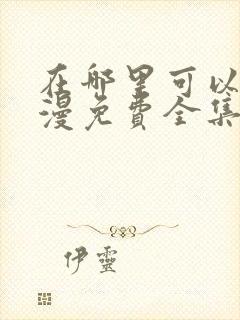 在哪里可以
漫免费全集
伊靈